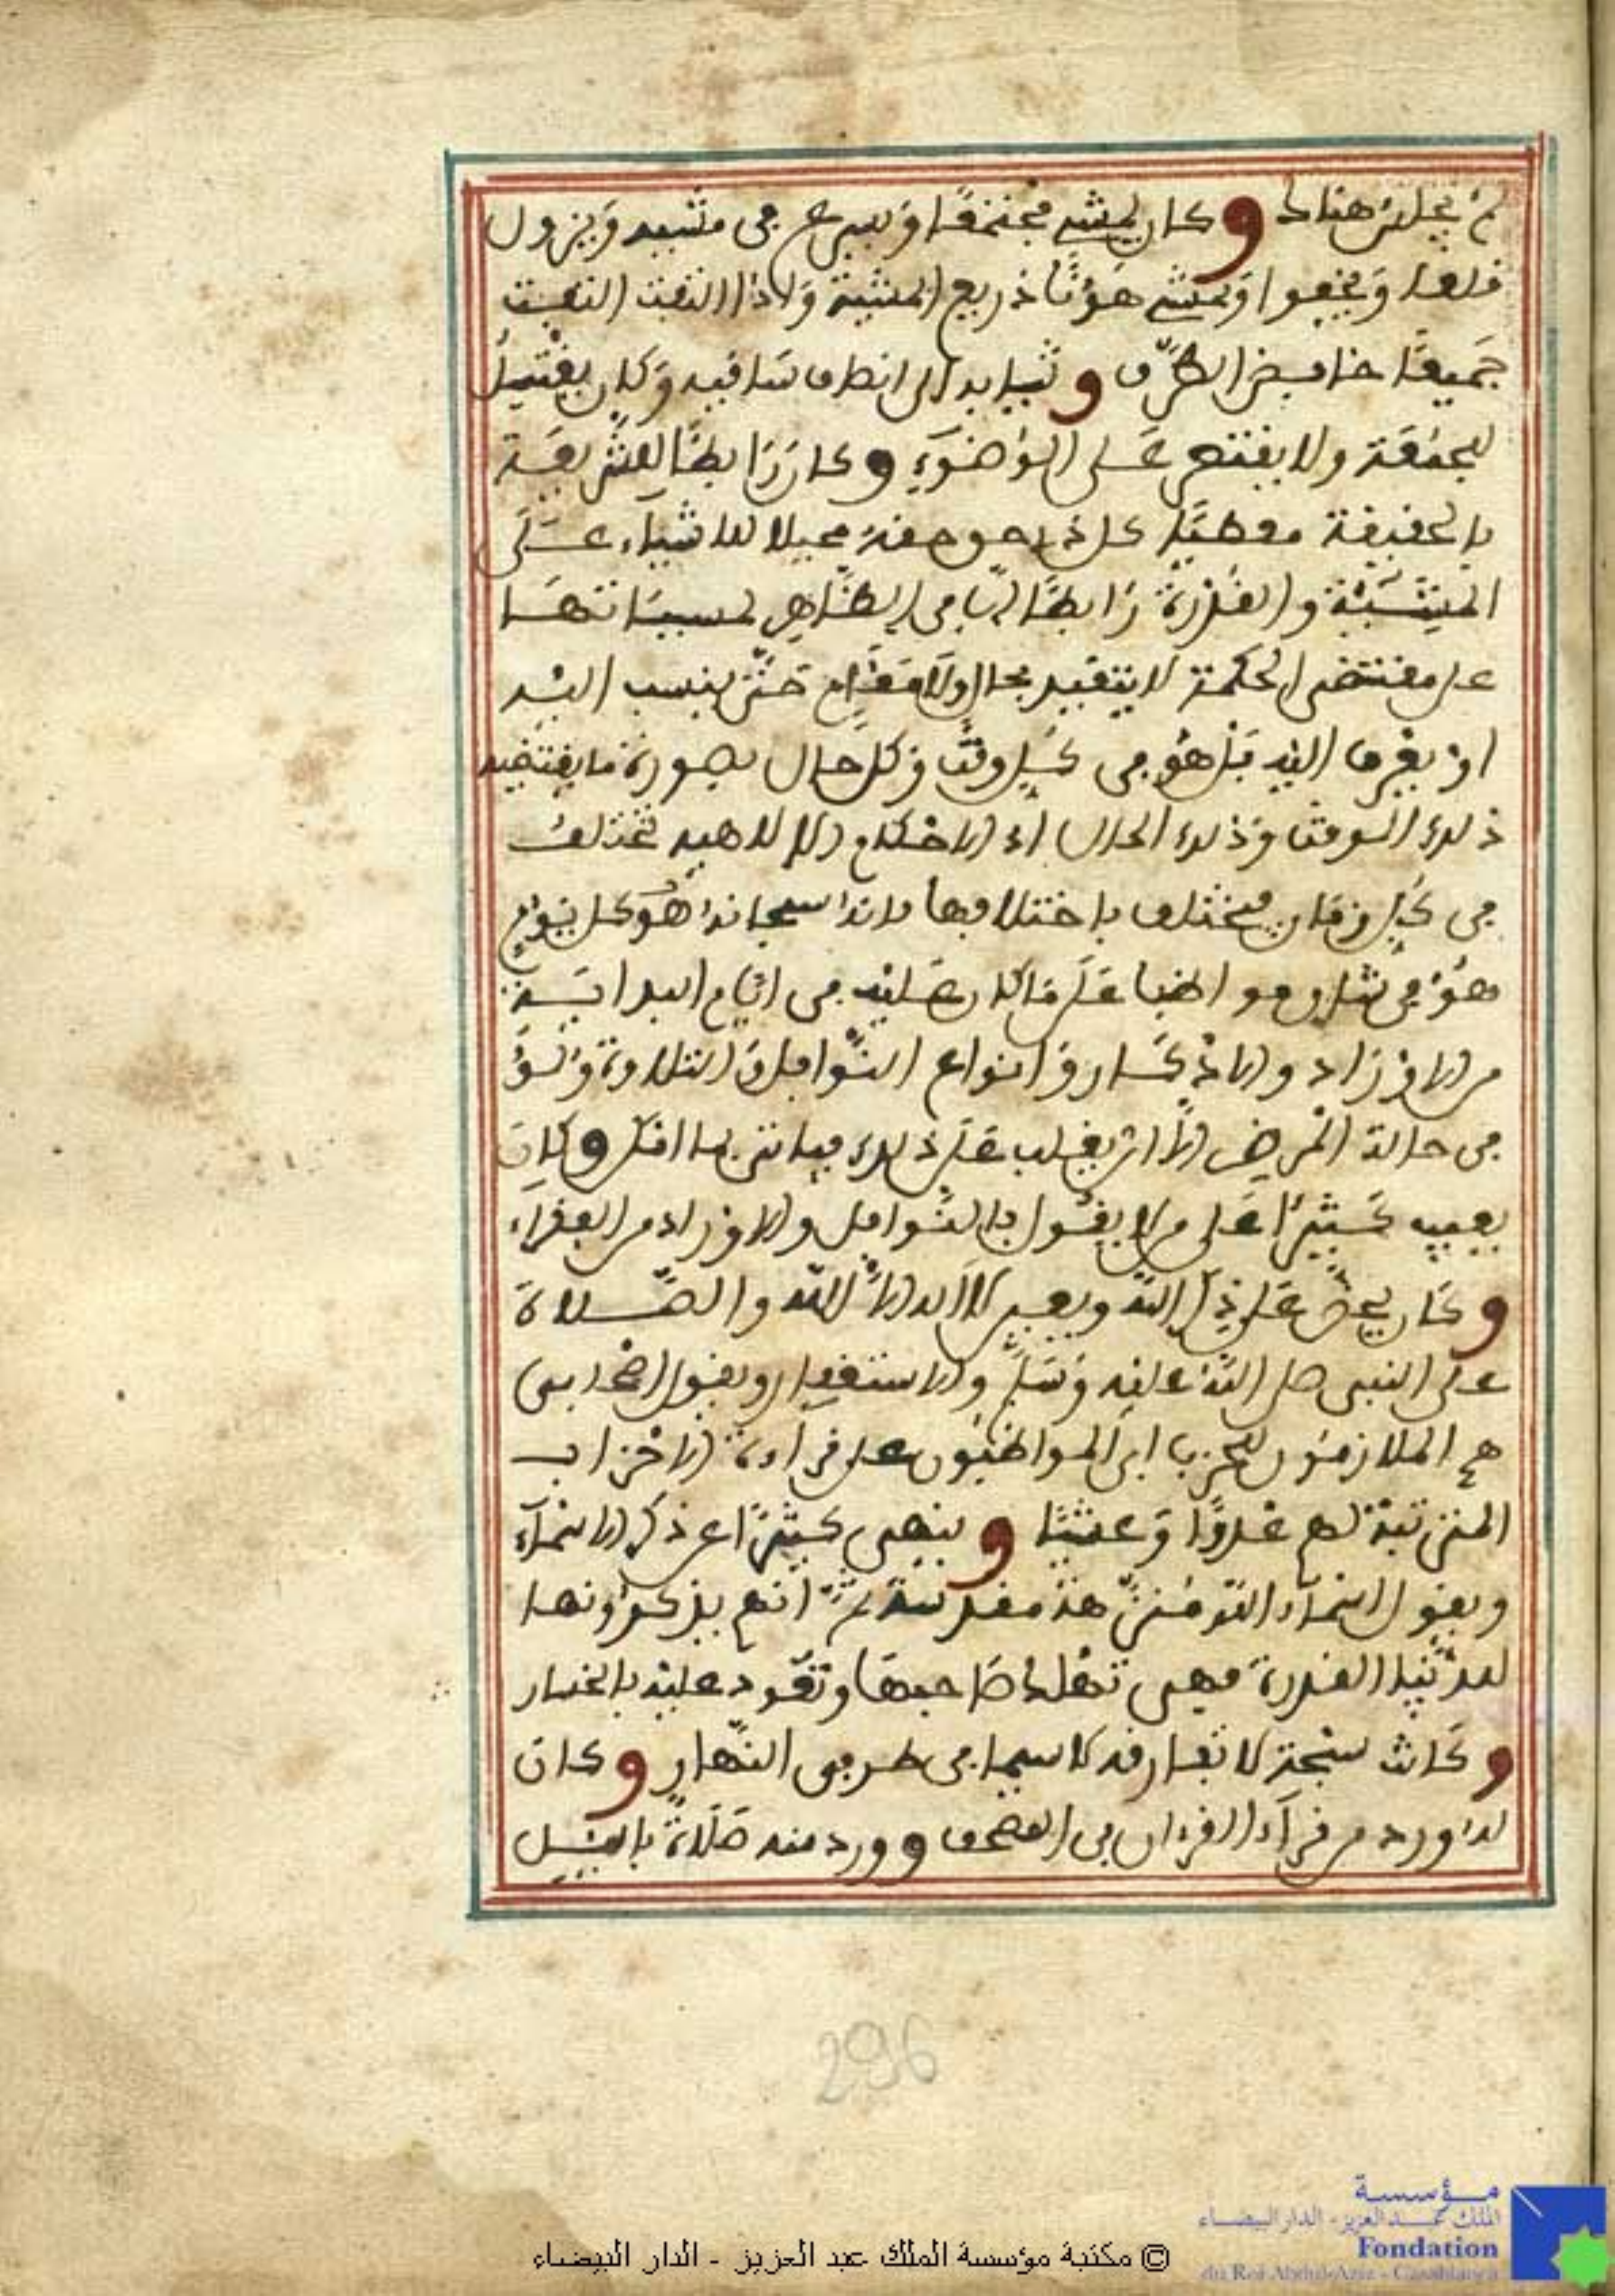 لم يجلس هناك وكان يمشي مجتمعا ويسرع في مشيه ويزول
قلعا ويخطوا ويمشي هونا ذريع المشية وإذا التفت التفت
جميعا خافض الطرف وثيابه إلى انصاف ساقيه وكان يغتسل
للجمعة ولا يقتصر على الوضوء وكان رابطا للشريعة
بالحقيقة معطيا كل ذي حق حقه محيلا للاشياء على
المشيئة والقدرة رابطا لها في الظاهر لمسبباتها
على مقتضى الحكمة لا يتقيد بحال ولا مقام حتى ينسب اليه
او يعرف اليه بل هو في كل وقت وكل حال بصورة ما يقتضيه
ذلك الوقت وذلك الحال اذ الاحكام الالاهية تختلف
في كل زمان فيختلف باختلافها فانه سبحانه هو كل يوم
هو في شان مواظبا على ما كان عليه في ايام البداية
من الاوراد والاذكار وانواع النوافل والتلاوة ولو
في حالة المرض الا ان يغلب على ذلك فياتي بما امكن وكان
يعيب كثيرا على من لا يقول بالنوافل والاوراد من الفقراء
وكان يحض على ذكر الله وبعد لا اله الا الله والصلاة
على النبي صلى الله عليه وسلم والاستغفار ويقول اصحابي
هم الملازمون للحزب اي المواظبون على قراءة الاحزاب
المرتبة لهم غدوا وعشيا وينهى كثيرا عن ذكر الاسماء
ويقول اسماء الله منزهة مقدسة ثم انهم يذكرونها
للدنيا القذرة فهي تهلك صاحبها وتعود عليه بالخسار
وكانت سبحته لا تفارقه لا سيما في طرفي النهار وكان
له ورد من قراءة القرءان في المصحف وورد منه صلاة بالليل
296
مؤسسة
الملك عبد العزيز - الدار البيضاء
Fondation
du Roi Abdul-Aziz - Casablanca
© مكتبة مؤسسة الملك عبد العزيز - الدار البيضاء